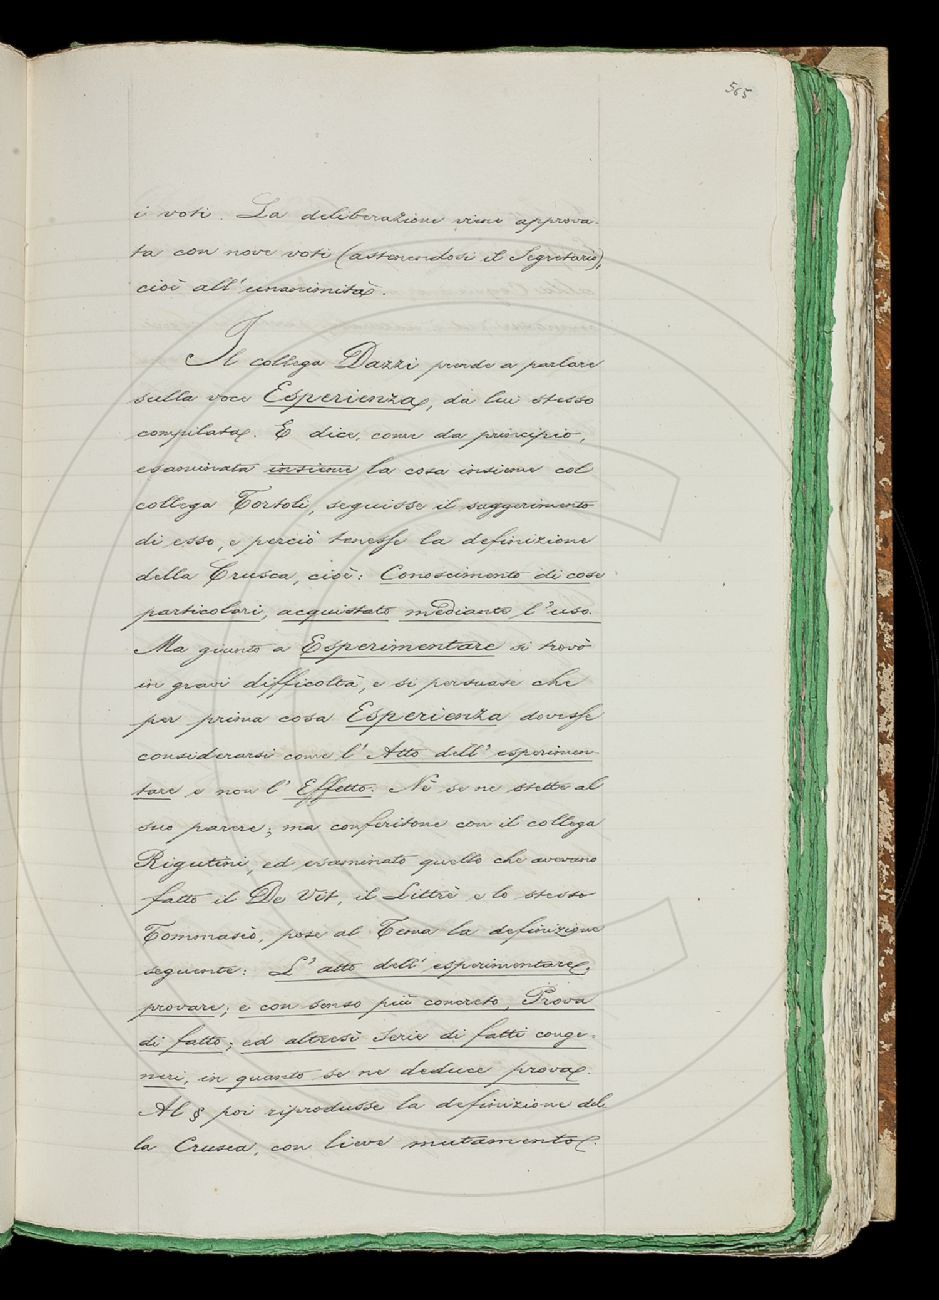 565
i voti. La deliberazione viene approva-
ta con nove voti (astenendosi il Segretario),
cioè all'unanimità.
Il collega Dazzi prende a parlare
sulla voce Esperienza, da lui stesso
compilata. E dice, come da principio,
esaminata insieme la cosa insieme col
collega Tortoli, seguisse il suggerimento
di esso, e perciò tenesse la definizione
della Crusca, cioè: Conoscimento di cose
particolari, acquistato mediante l'uso.
Ma giunto a Esperimentare si trovò
in gravi difficoltà, e si persuase che
per prima cosa Esperienza dovesse
considerarsi come l'Atto dell'esperimen-
tare e non l'Effetto. Nè se ne stette al
suo parere; ma conferitone con il collega
Rigutini, ed esaminato quello che avevano
fatto il De Vit, il Littrè e lo stesso
Tommasèo, pose al Tema la definizione
seguente: L'atto dell'esperimentare,
provare; e con senso più concreto, Prova
di fatto; ed altresì Serie di fatti conge-
neri, in quanto se ne deduce prova.
Al § poi riprodusse la definizione del-
la Crusca, con lieve mutamento.